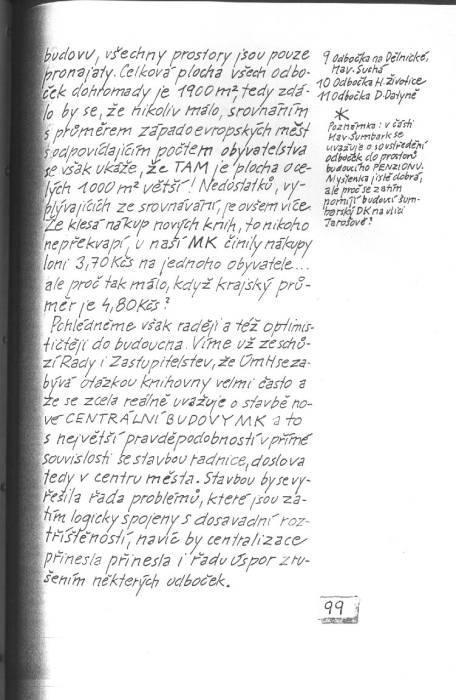 budovu, všechny prostory jsou pouze
pronajaty. Celková plocha všech odbo-
ček dohromady je 1900 m², tedy zdá-
lo by se, že nikoliv málo, srovnáním
s průměrem západoevropských měst
s odpovídajícím počtem obyvatelstva
se však ukáže, že TAM je plocha o ce-
lých 1000 m² větší! Nedostatků, vy-
plývajících ze srovnávání, je ovšem více.
Že klesá nákup nových knih, to nikoho
nepřekvapí, u naší MK činily nákupy
loni 3,70 Kčs na jednoho obyvatele...
ale proč tak málo, když krajský prů-
měr je 4,80 Kčs?
Pohlédněme však raději a též optimis-
tičtěji do budoucna. Víme už ze schů-
zí Rady i Zastupitelstev, že ÚmH se za-
bývá otázkou knihovny velmi často a
že se zcela reálně uvažuje o stavbě no-
vé CENTRÁLNÍ BUDOVY MK a to
s největší pravděpodobností v přímé
souvislosti se stavbou radnice, doslova
tedy v centru města. Stavbou by se vy-
řešila řada problémů, které jsou za-
tím logicky spojeny s dosavadní roz-
tříštěností, navíc by centralizace
přinesla přinesla i řadu úspor zru-
šením některých odboček.
9 Odbočka na Dělnické,
Hav. Suchá
10 Odbočka H. Životice
11 Odbočka D. Datyně
*
Poznámka: v části
Hav-Šumbark se
uvažuje o soustředění
odboček do prostorů
budoucího PENZIONU.
Myšlenka jistě dobrá,
ale proč se zatím
pomíjí budoucí šum-
barský DK na ulici
Jarošové?
99